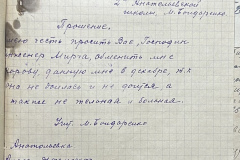 Анатольевской
школы, М. Бондаренко
Прошение.
честь просить Вас, Господин
Инженер Мирча, обменить мне
корову, данную мне в декабре, т.к
она не доилась и не доится, а
также не тельная и больная.
Учит. М. Бондаренко
Анатольевка